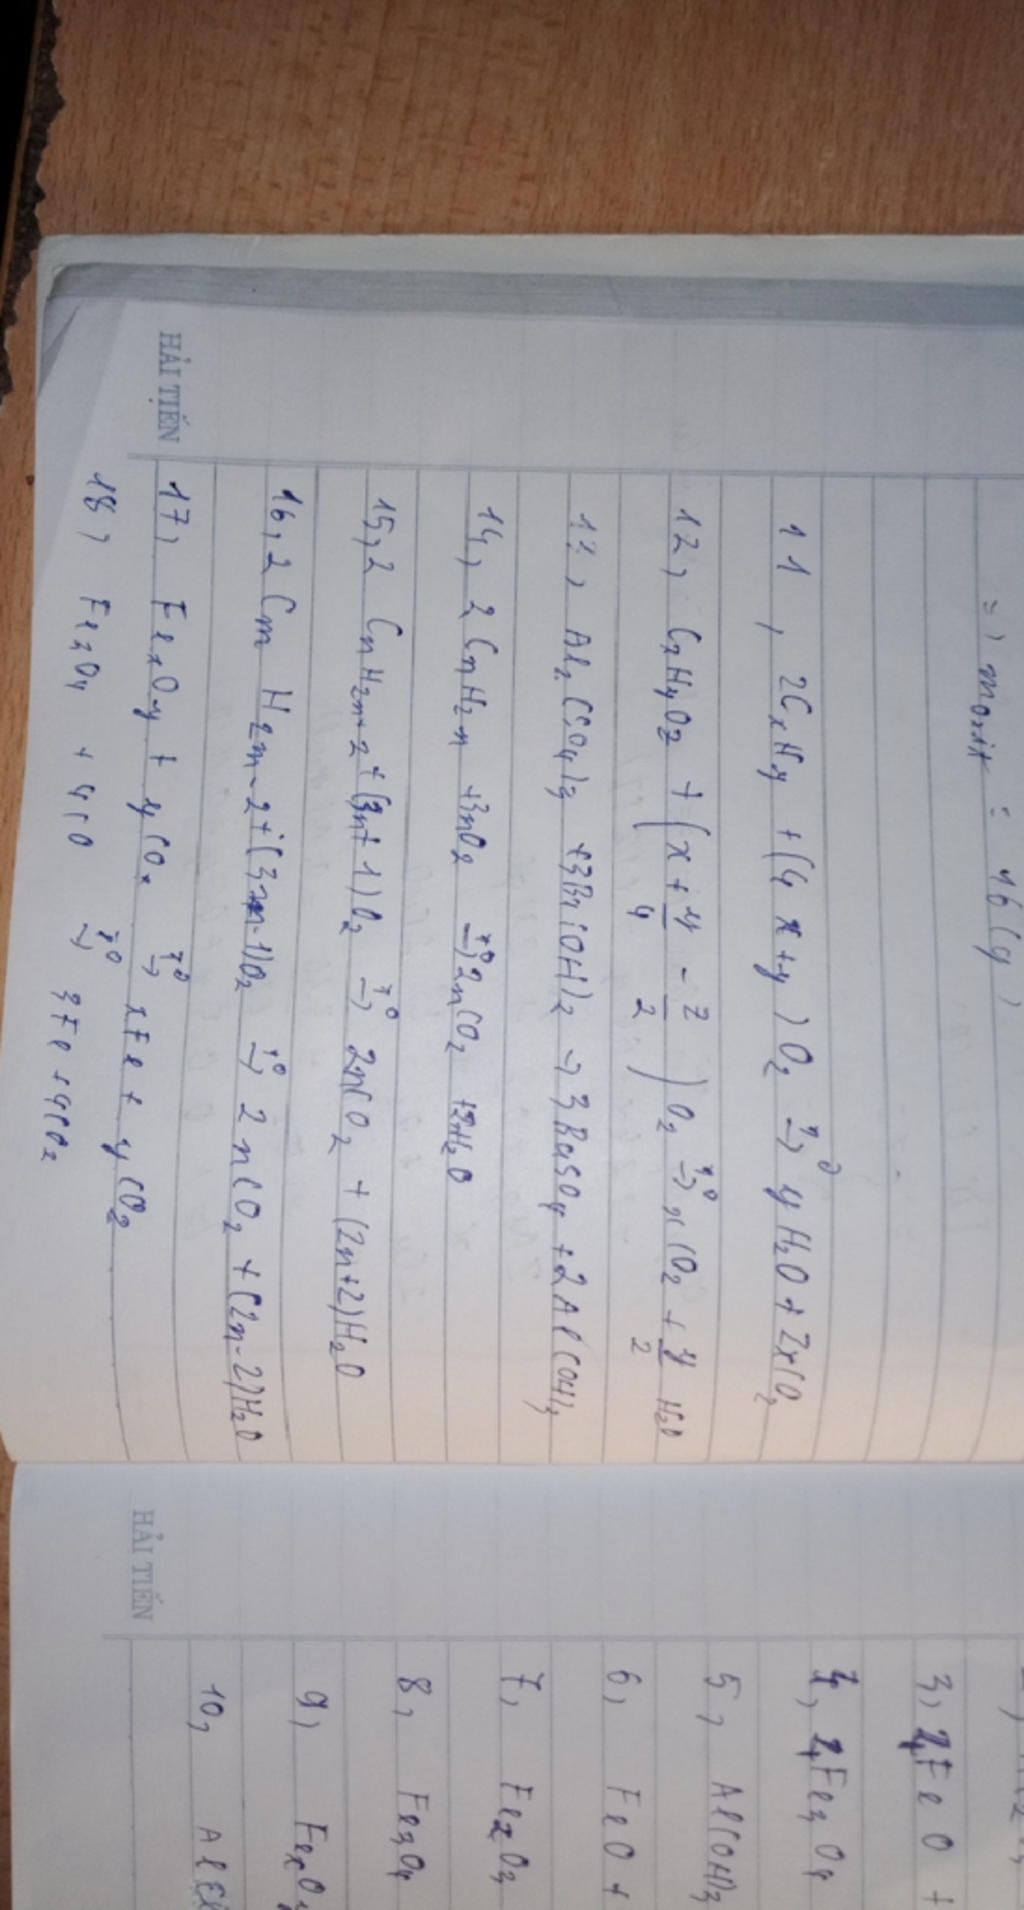 =) moxit = 16(g)
11, 2CxHy + (4x+y)O2 t°→ yH2O + 2xCO2
12, CxHyO2 + (x + y/4 - z/2) O2 t°→ xCO2 + y/2 H2O
13, Al2(SO4)3 +3Ba(OH)2 → 3BaSO4 + 2Al(OH)3
14, 2CnH2n +3nO2 t°→ 2nCO2 +2nH2O
15, 2CnH2n+2 + (3n+1)O2 t°→ 2nCO2 + (2n+2)H2O
16, 2Cm H2m-2 + (3n-1)O2 t°→ 2nCO2 + (2n-2)H2O
17, FexOy + yCOx t°→ xFe + yCO2
18, Fe3O4 + 4CO t°→ 3Fe + 4CO2
HẢI TIẾN
3, FeO +
Fe3O4
5, Al(OH)3
6, FeO +
7, Fe2O3
8, Fe3O4
9, FexOy
10, AlCl
HẢI TIẾN